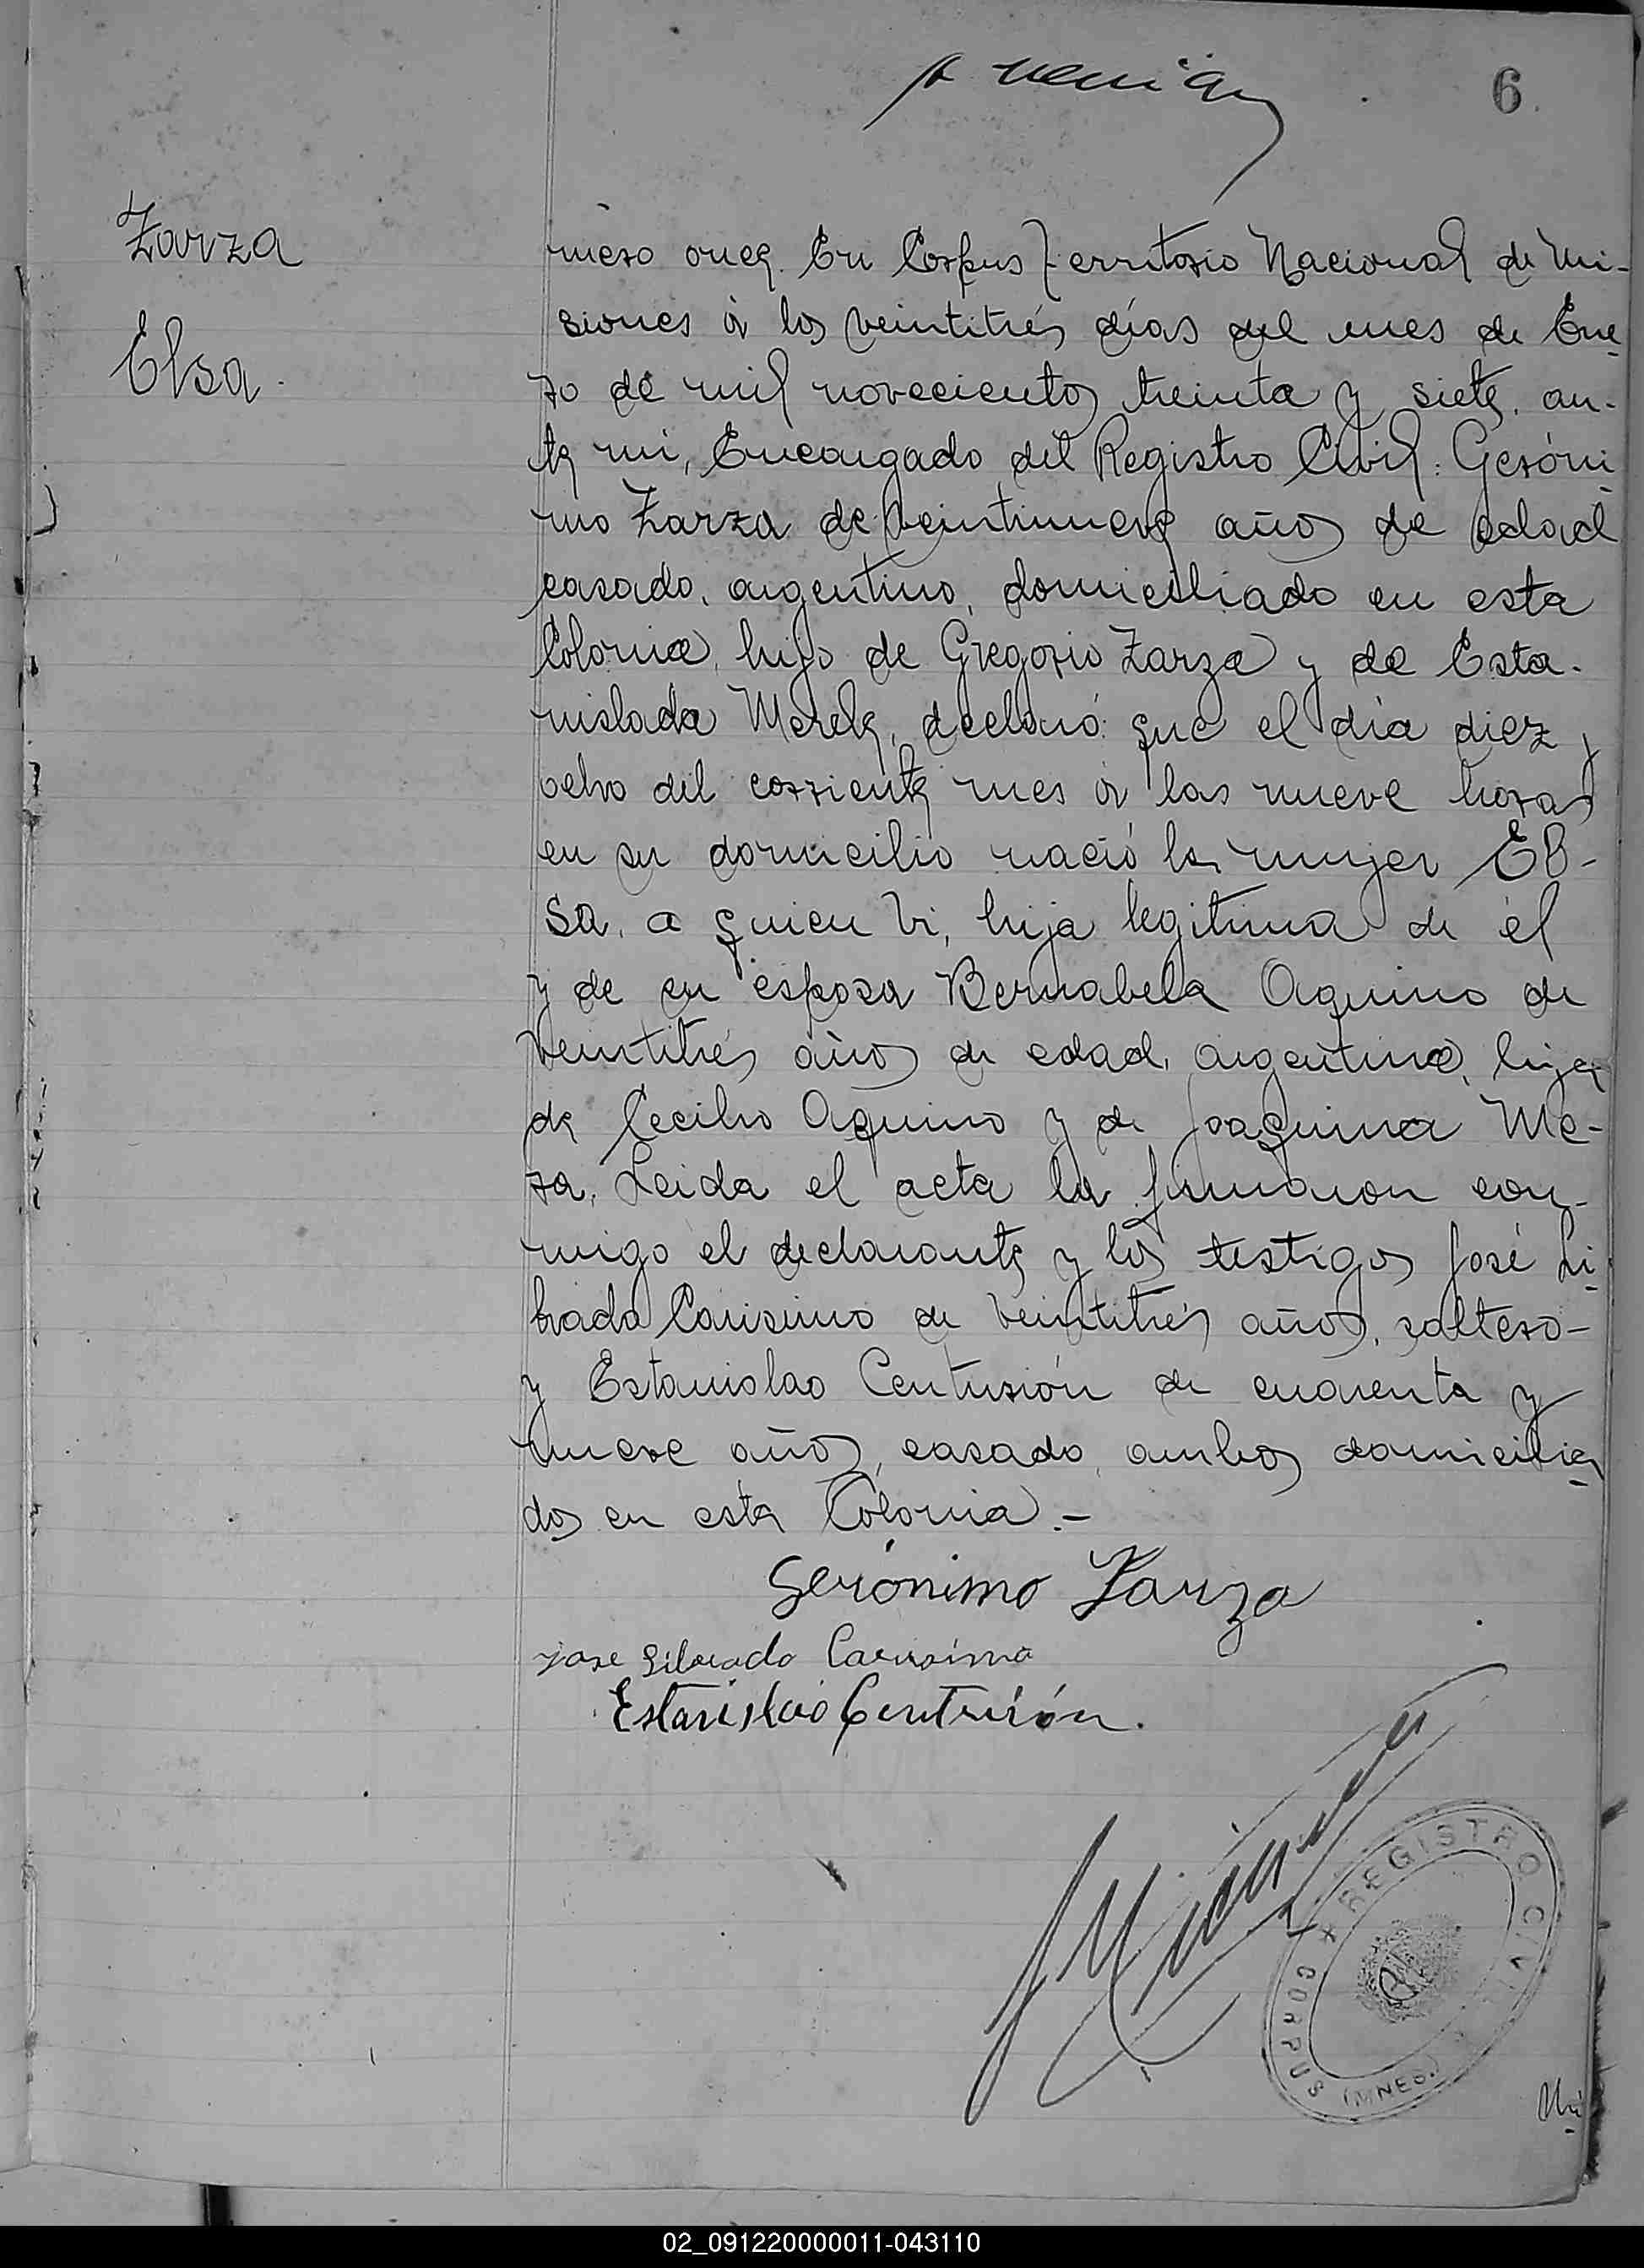 6
Zarza
Elsa.
mero once. En Corpus Territorio Nacional de Mi-
siones á los veintitrés días del mes de Ene
ro de mil novecientos treinta y siete, an-
te mi, Encargado del Registro Civil: Geróni
mo Zarza de veintinueve años de edad
casado, argentino, domiciliado en esta
Colonia, hijo de Gregorio Zarza y de Esta-
nislada Merele, declaró: que el día diez y
ocho del corriente mes á las nueve horas
en su domicilio nació la mujer El-
sa, a quien vi, hija legitima de él
y de su esposa Bernabela Aquino de
veintitrés años de edad, argentina, hija
de Cecilio Aquino y de Joaquina Me-
za. Leida el acta la firmaron con-
migo el declarante y los testigos José Li
brado Carísimo de veintitrés años, soltero-
y Estanislao Centurión de cuarenta y
nueve años, casado, ambos domicilia
dos en esta Colonia.-
Gerónimo Zarza
Jose Librado Carísimo
Estanislao Centurión.
REGISTRO CIVIL
CORPUS (MNES.)
02_091220000011-043110